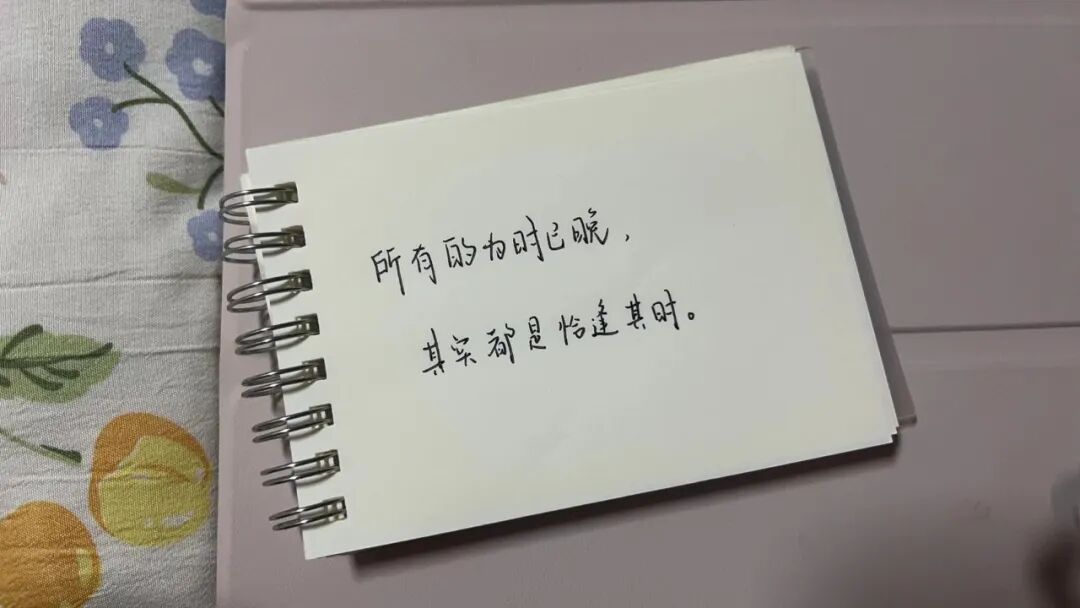 所有的为时已晚，
其实都是恰逢其时。